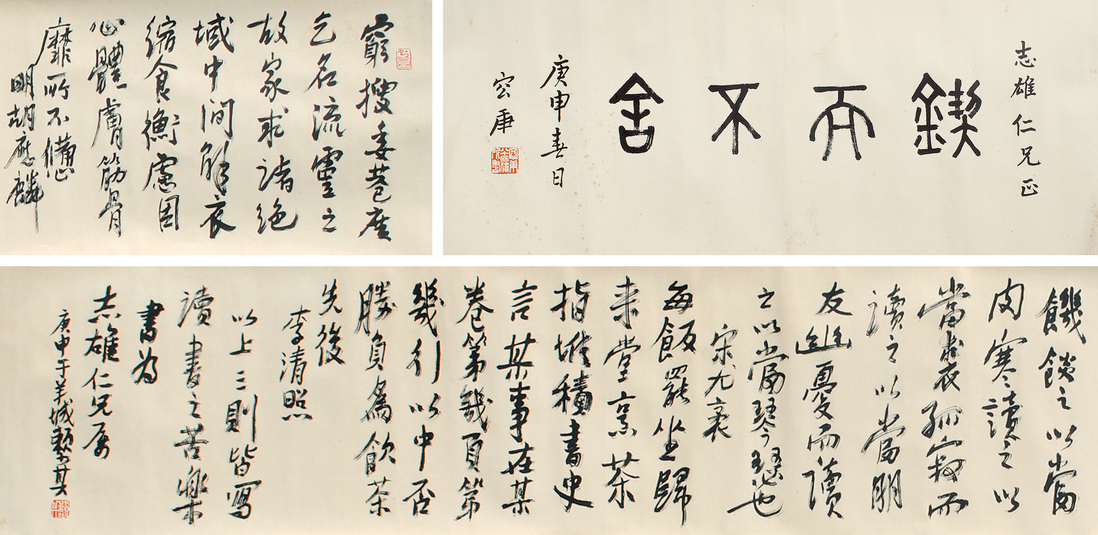 志雄仁兄正
鍥而不舍
庚申春日
容庚
窮搜委巷廣
乞名流之
故家求諸絕
域中間解衣
縮食衡慮困
心體膚筋骨
靡所不憊
明胡應麟
饑之以當
肉寒讀之以
當裘孤寂而
讀之以當朋
友幽憂而讀
之以當琴瑟也
宋尤袤
每飯罷坐歸
來堂烹茶
指堆積書史
言某事在某
卷第幾頁第
幾行以中否
勝負為飲茶
先後
李清照
以上三則皆寫
讀書之苦樂
書為
志雄仁兄屬
庚申于羊城